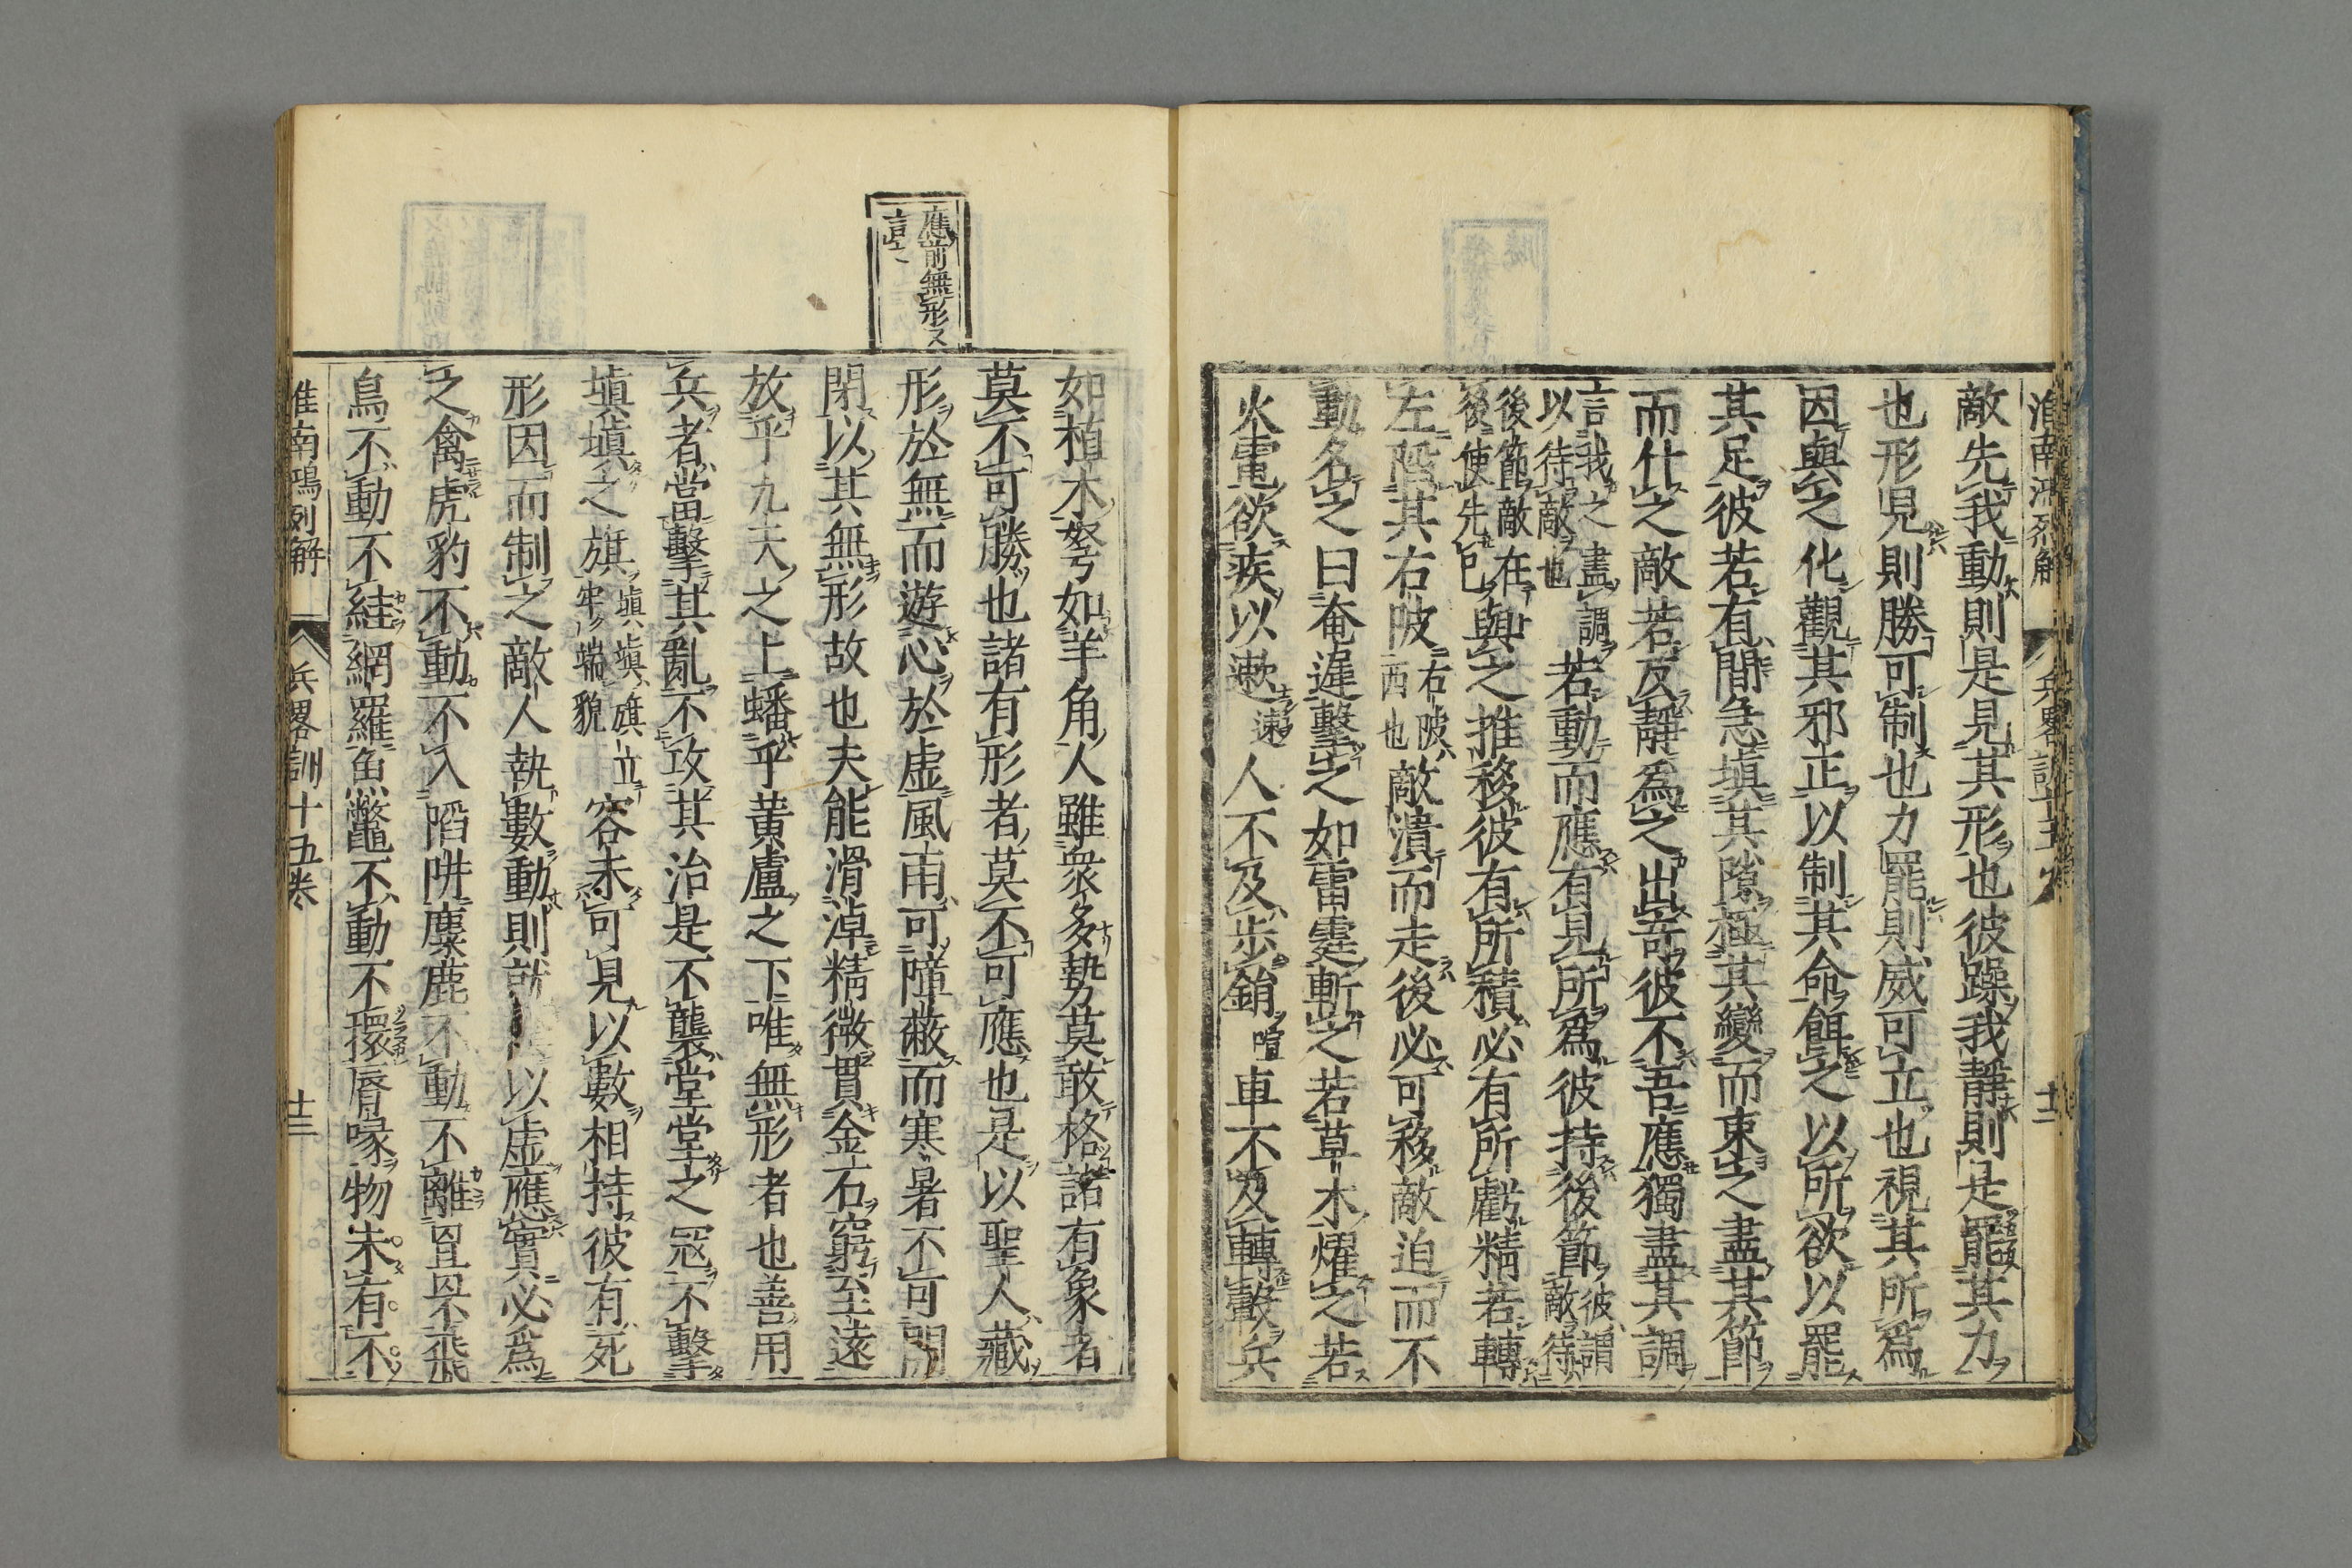 淮南鴻烈解 兵畧訓十五卷 十二
敵先我動則是見其形也彼躁我靜則是罷其力
也形見則勝可制也力罷則威可立也視其所爲
因與之化觀其邪正以制其命餌之以所欲以罷
其足彼若有間急填其隙極其變而束之盡其節
而仆之敵若反靜爲之出奇彼不吾應獨盡其調
言我之盡調以待敵也若動而應有見所爲彼持後節彼謂敵待
後節敵在後使先己與之推移彼有所積必有所虧精若轉
左陷其右陂右陂西也敵潰而走後必可移敵迫而不
動名之曰奄遲擊之如雷霆斬之若草木燿之若
火電欲疾以遬遬人不及步鋗車不及轉轂兵
應前無形ヲ
言之
如植木弩如羊角人雖衆多勢莫敢格諸有象者
莫不可勝也諸有形者莫不可應也是以聖人藏
形於無而遊心於虛風雨可障蔽而寒暑不可開
閉以其無形故也夫能滑淖精微貫金石窮至遠
放乎九天之上蟠乎黄盧之下唯無形者也善用
兵者當擊其亂不攻其治是不襲堂堂之寇不擊
塡塡之旗塡塡旗立牢端貌容未可見以數相持彼有死
形因而制之敵人執數動則就以虛應實必爲
之禽虎豹不動不入陷阱麋鹿不動不離罝罘飛
鳥不動不絓網羅魚鼈不動不擐唇喙物未有不
淮南鴻列解 兵畧訓十五卷 十三